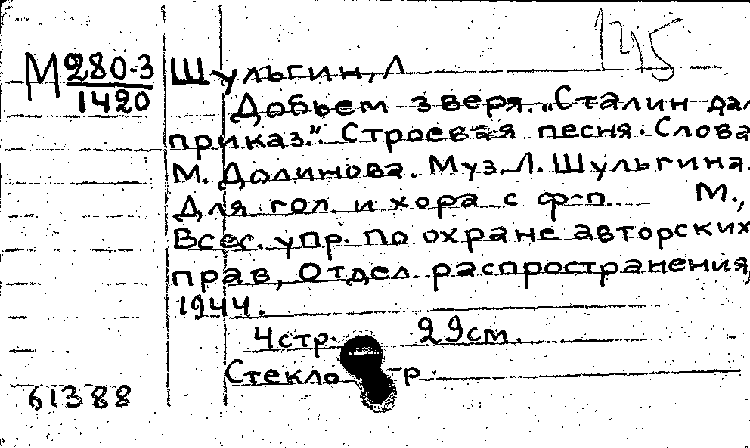 1245
М 280-3
1420
Шульгин, Л
Добьем зверя. "Сталин дал
приказ." Строевая песня. Слова
М. Долинова. Муз. Л. Шульгина.
Для гол. и хора с ф-п. М.,
Всес. упр. по охране авторских
прав, Отдел. распространения,
1944.
4 стр. 29 см.
Стекло тр.
61388